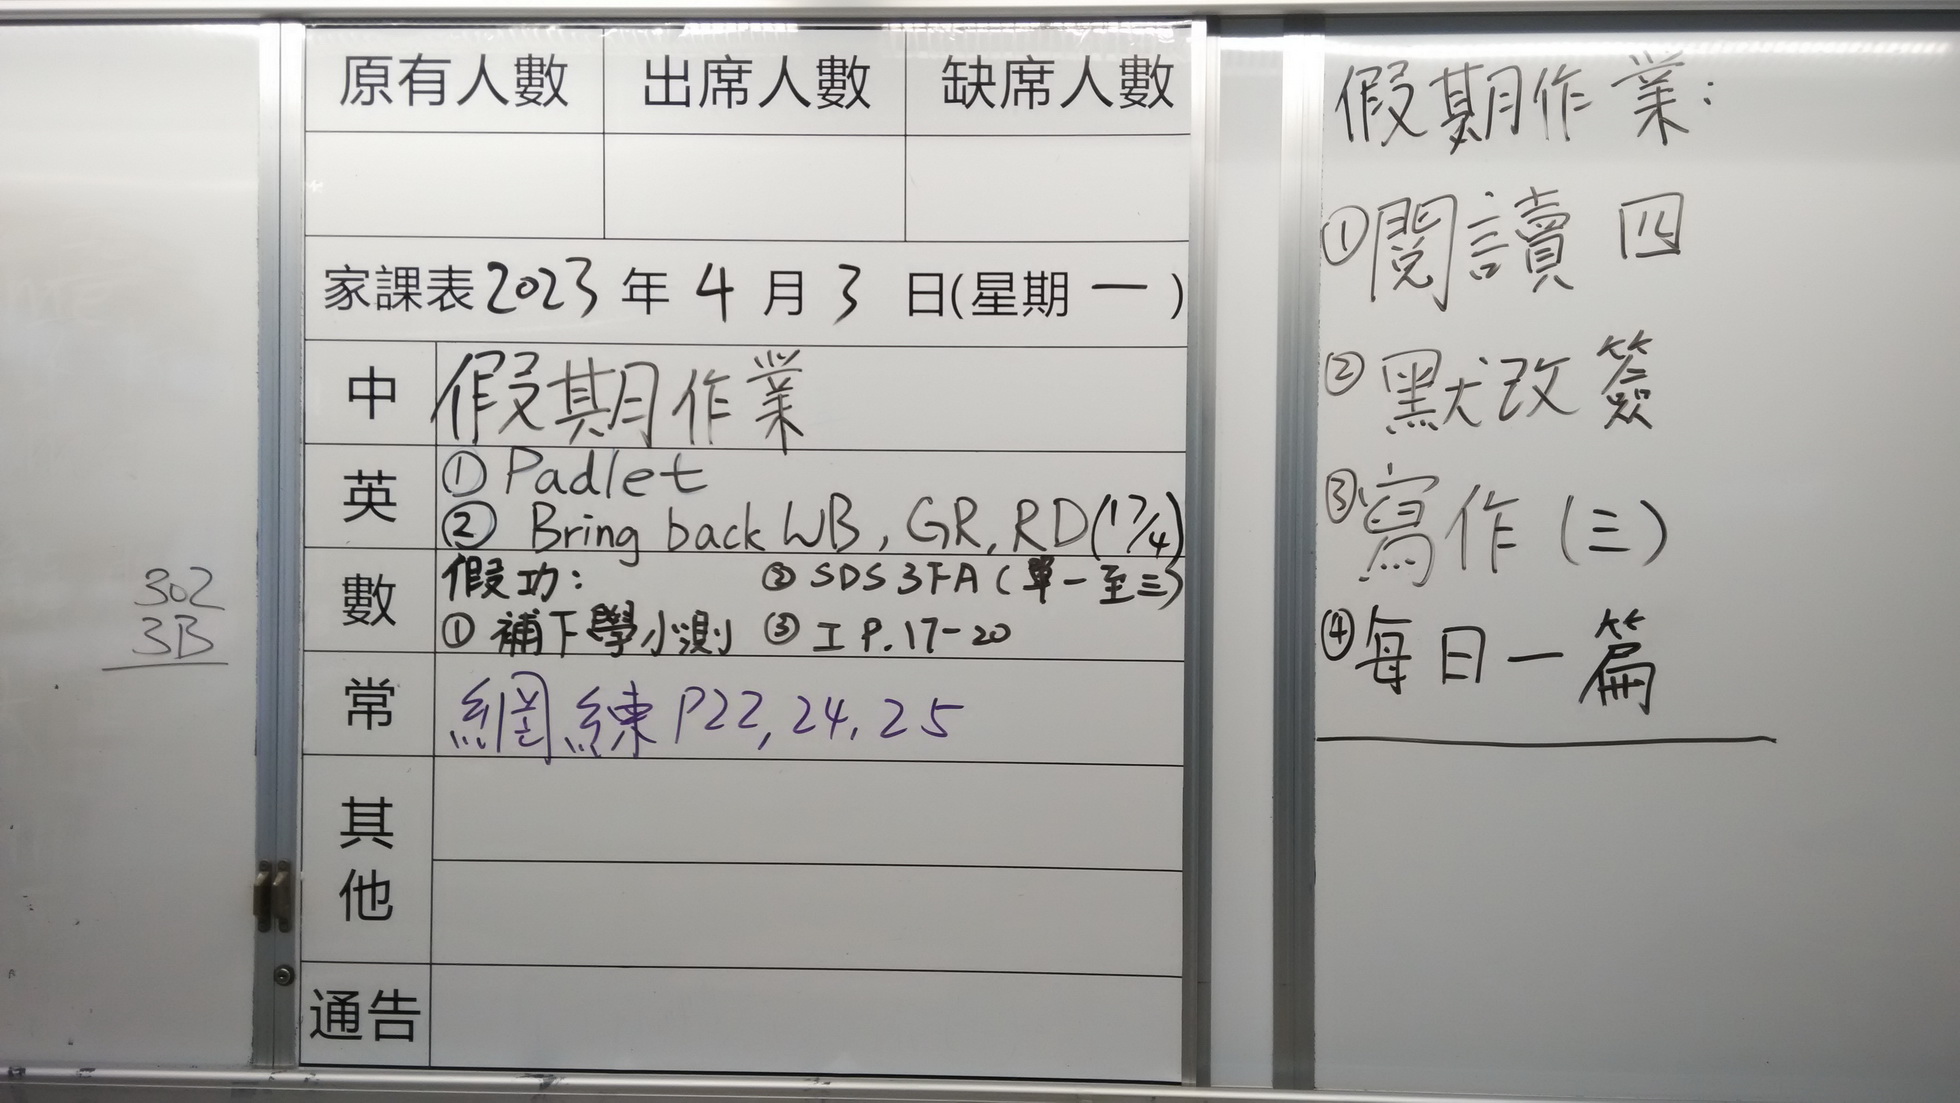 原有人數 出席人數 缺席人數
家課表 2023 年 4 月 3 日(星期 一 )
中 假期作業
英 ① Padlet
② Bring back WB, GR, RD(17/4)
數 假功: ② SDS 3FA (單一至三)
① 補下學小測 ③ 工 P.17-20
常 網練 P22, 24, 25
其他
通告
302
3B
假期作業:
① 閱讀 四
② 默改簽
③ 寫作 (三)
④ 每日一篇